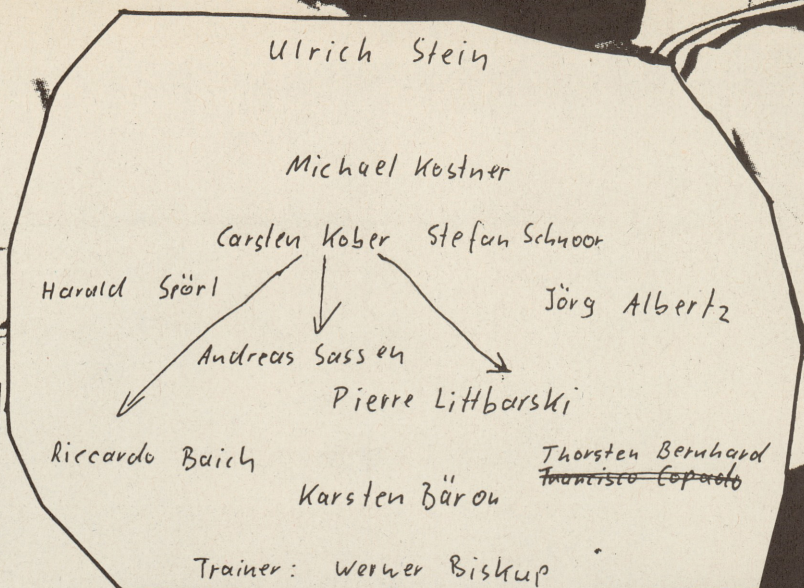 Ulrich Stein
Michael Kostner
Carsten Kober Stefan Schnoor
Harald Spörl
Jörg Albertz
Andreas Sassen
Pierre Littbarski
Riccardo Baich
Thorsten Bernhard
Francisco Copado
Karsten Bäron
Trainer: Werner Biskup